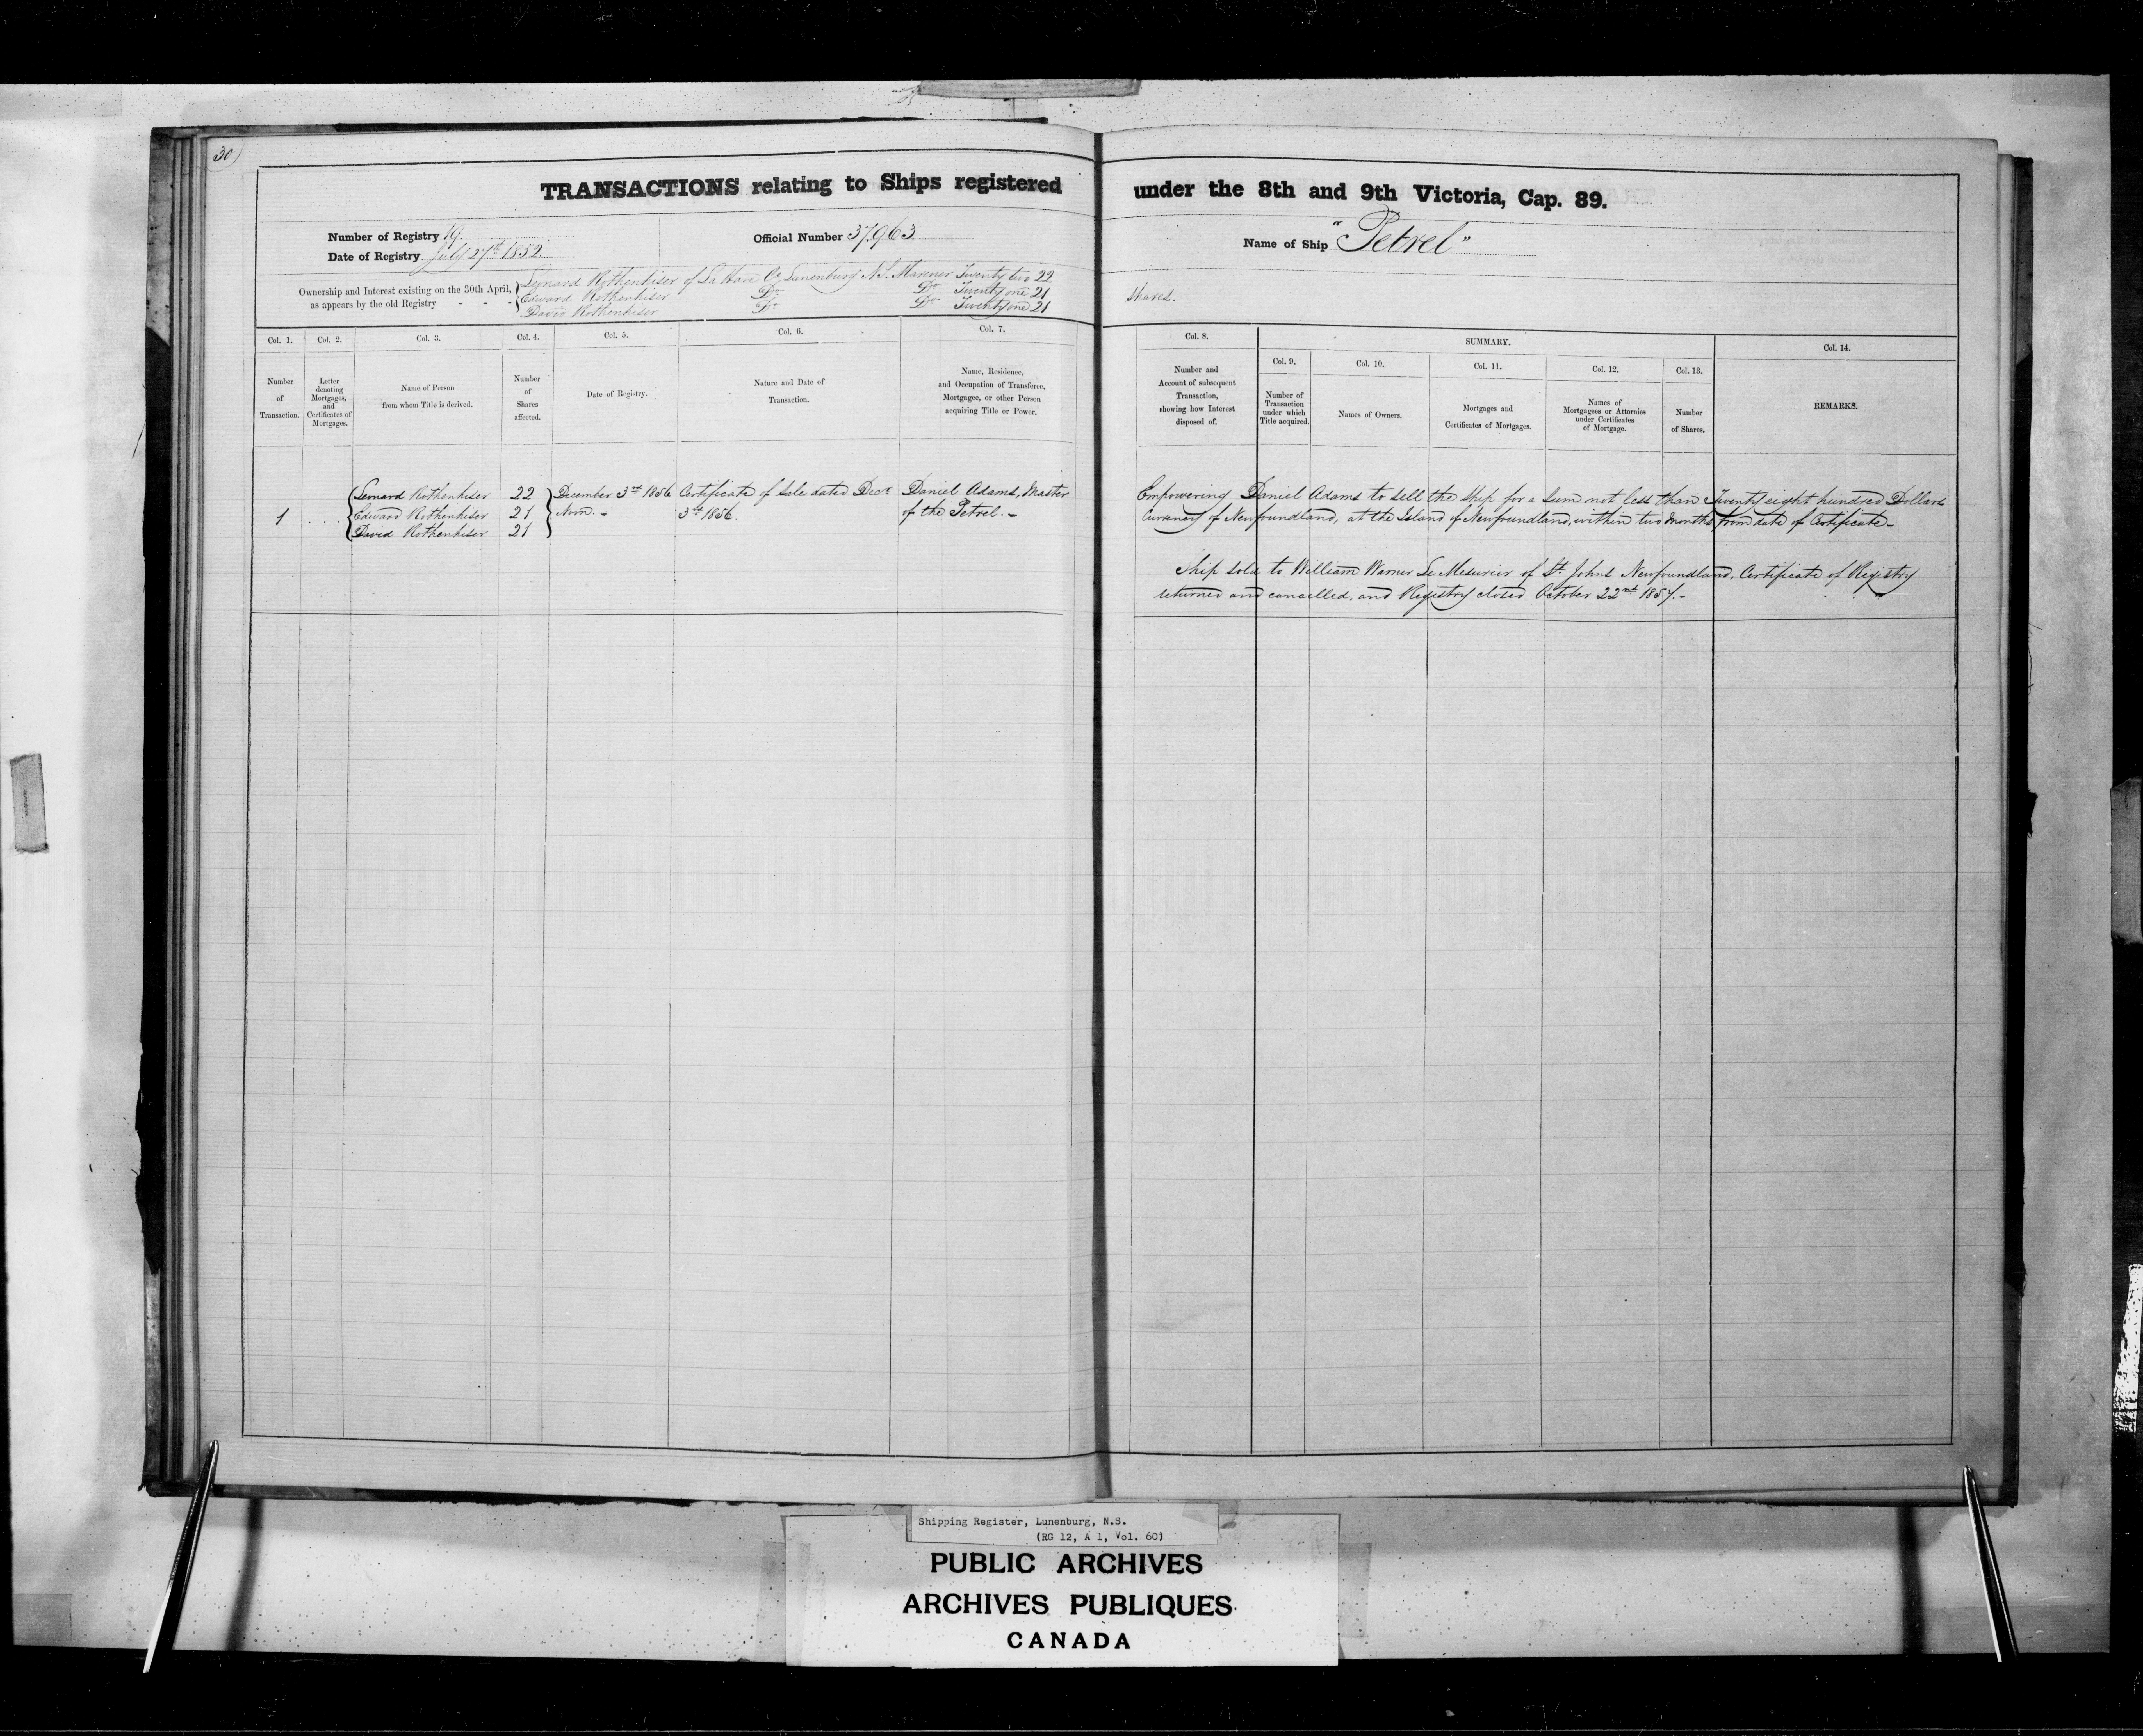 30)
TRANSACTIONS relating to Ships registered under the 8th and 9th Victoria, Cap. 89.
Number of Registry 19
Date of Registry July 27th 1852
Official Number 37.963
Name of Ship "Petrel"
Ownership and Interest existing on the 30th April, as appears by the old Registry - - -
Lennard Rothenhiser of La Have Co Lunenburg N.S. Mariner Twenty two 22
Edward Rothenhiser Do Do Twenty one 21 Shares.
David Rothenhiser Do Do Twenty one 21
Col. 1. Number of Transaction.
Col. 2. Letter denoting Mortgages, and Certificates of Mortgages.
Col. 3. Name of Person from whom Title is derived.
Col. 4. Number of Shares affected.
Col. 5. Date of Registry.
Col. 6. Nature and Date of Transaction.
Col. 7. Name, Residence, and Occupation of Transferee, Mortgagee, or other Person acquiring Title or Power.
Col. 8. Number and Account of subsequent Transaction, showing how Interest disposed of.
SUMMARY.
Col. 9. Number of Transaction under which Title acquired.
Col. 10. Names of Owners.
Col. 11. Mortgages and Certificates of Mortgages.
Col. 12. Names of Mortgagees or Attornies under Certificates of Mortgage.
Col. 13. Number of Shares.
Col. 14. REMARKS.
Lennard Rothenhiser 22 December 3rd 1856 Certificate of Sale dated Decr Daniel Adams, Master
1 .... Edward Rothenhiser 21 Noon.- 3rd 1856. of the Petrel.-
David Rothenhiser 21
Empowering Daniel Adams to sell the Ship for a sum not less than Twenty eight hundred Dollars
Currency of Newfoundland, at the Island of Newfoundland, within two Months from date of Certificate-
Ship sold to William Warner Le Mesurier of St. Johns Newfoundland, Certificate of Registry
returned and cancelled, and Registry closed October 22nd 1857.-
Shipping Register, Lunenburg, N.S.
(RG 12, A 1, Vol. 60)
PUBLIC ARCHIVES
ARCHIVES PUBLIQUES
CANADA